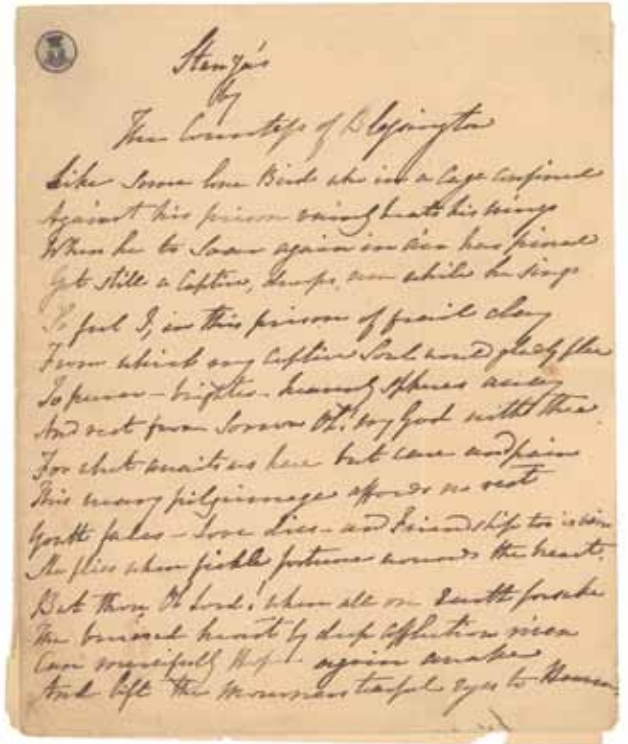 Stanza's
by
The Countess of Blessington
Like some lone Bird who in a Cage confined
Against his prison vainly beats his wings
When he to Soar again in air has pined
Yet still a Captive, droops, even while he sings
So feel I, in this prison of frail clay
From which my Captive Soul would gladly flee
To purer - brighter - heavenly Spheres away
And rest from Sorrow Oh! my God with thee
For what awaits us here but care and pain
This weary pilgrimage affords no rest
Youth fades - Love dies - and Friendship too is vain
She flies when fickle fortune wounds the breast.
But thou, Oh Lord! when all on Earth forsake
The bruised heart by deep affliction riven
Can mercifully Hope again awake
And lift the Mourners tearful eyes to Heaven